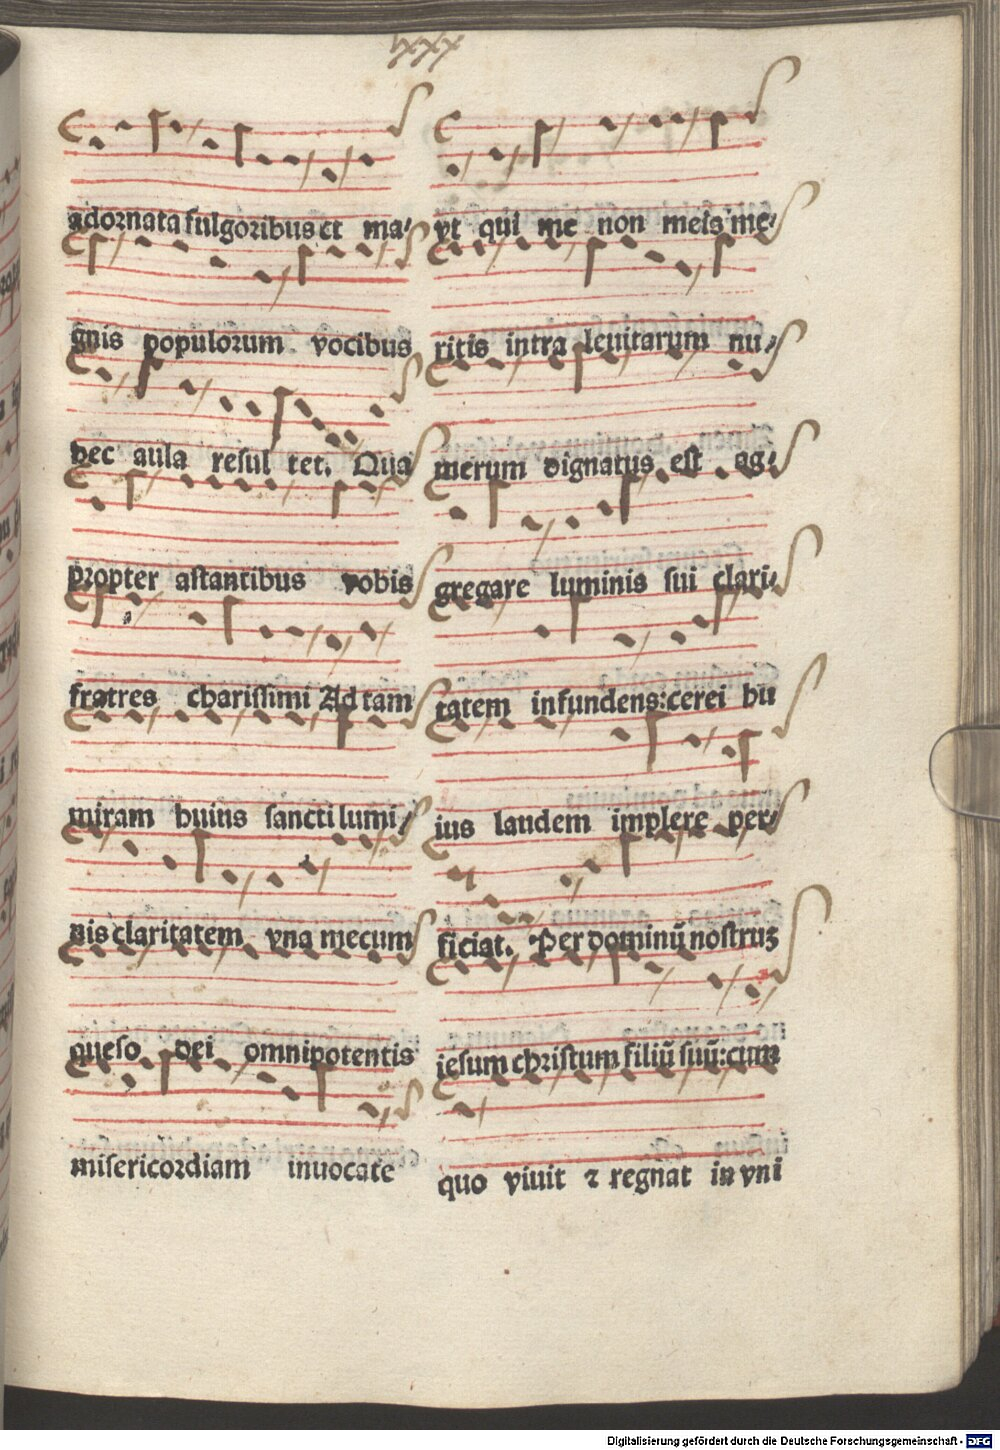 lxxx
adornata fulgoribus et ma/
gnis populorum vocibus
hec aula resul tet. Qua
propter astantibus vobis
fratres charissimi Ad tam
miram huius sancti lumi/
nis claritatem vna mecum
queso dei omnipotentis
misericordiam inuocate
vt qui me non meis me/
ritis intra leuitarum nu/
merum dignatus est ag/
gregare luminis sui clari/
tatem infundens: cerei hu
ius laudem implere per/
ficiat. Per dominū nostruꝫ
iesum christum filiū suū: cum
quo viuit ⁊ regnat in vni
Digitalisierung gefördert durch die Deutsche Forschungsgemeinschaft - DFG